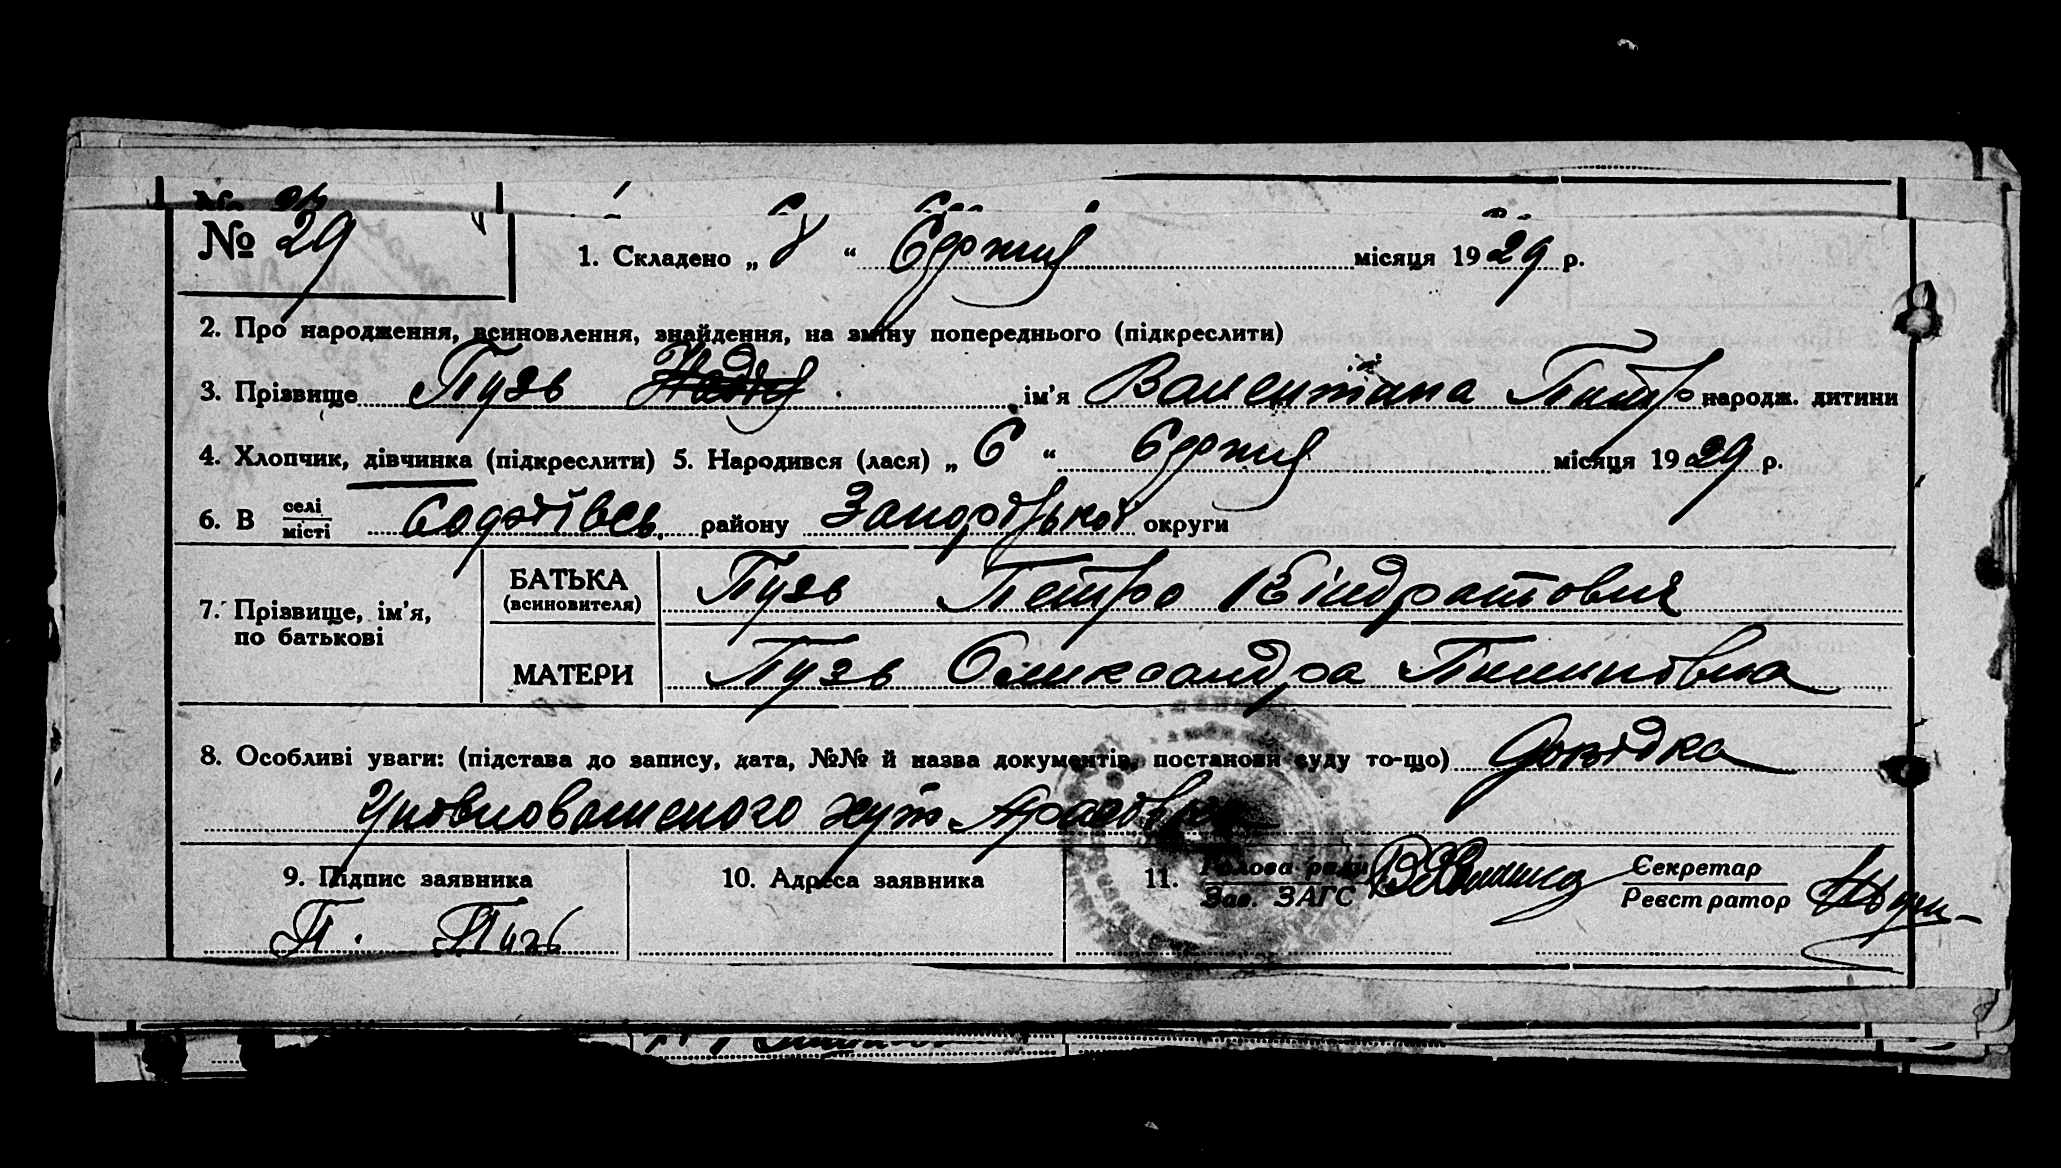 № 29
1. Складено „ “ місяця 1929 р.
2. Про народження, всиновлення, знайдення, на зміну попереднього (підкреслити)
3. Прізвище Пузь ім'я Валентина Питр народж. дитини
4. Хлопчик, дівчинка (підкреслити) 5. Народився (лася) „ 6 “ місяця 1929 р.
6. В селі місті району округи
7. Прізвище, ім'я, по батькові
БАТЬКА (всиновителя) Пузь Петро Кіндратович
МАТЕРИ Пузь Олександра Пилиповна
8. Особливі уваги: (підстава до запису, дата, №№ й назва документів, постанови суду то-що) довідка
хут
9. Підпис заявника
П. Пузь
10. Адреса заявника
11. Голова ради Зав. ЗАГС
Секретар Реєстратор